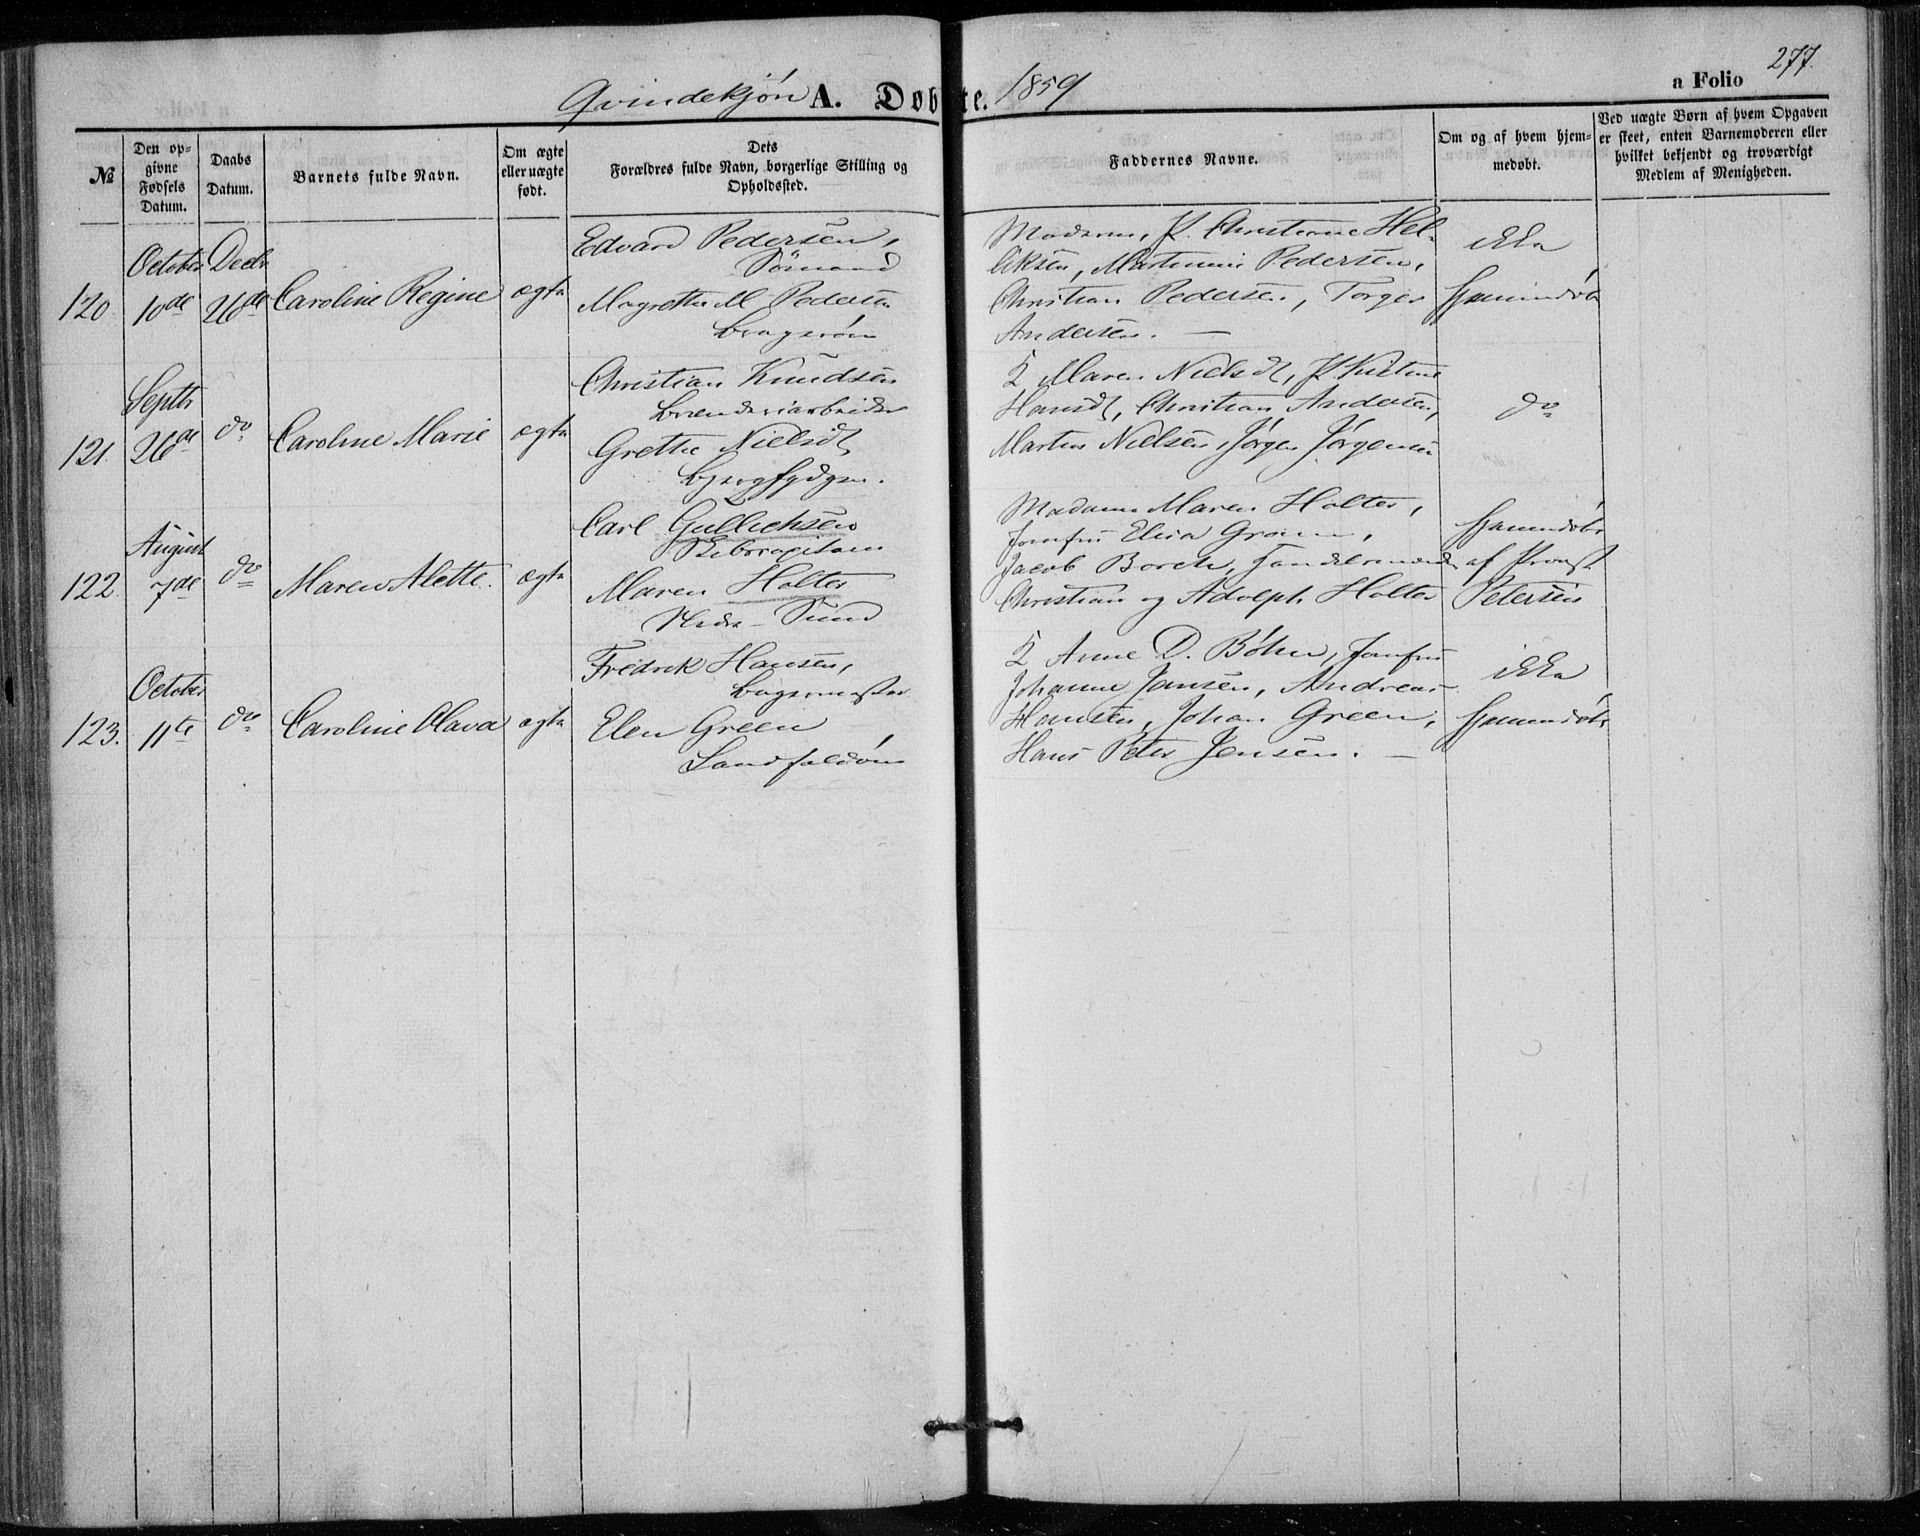 Qvindekjøn A. Døbte. 1859
a Folio 277.
№
Den op-
givne
Fødsels
Datum.
Daabs
Datum.
Barnets fulde Navn.
Om ægte
eller uægte
født.
Dets
Forældres fulde Navn, borgerlige Stilling og
Opholdssted.
Faddernes Navne.
Om og af hvem hjem-
medøbt.
Ved uægte Børn af hvem Opgaven
er skeet, enten Barnemoderen eller
hvilket bekjendt og troværdigt
Medlem af Menigheden.
120.
October
10de
Decbr
26de
Caroline Regine
ægte
Edvard Pedersen,
Sømand
Magrethe M Pedersen
Bragerøen
Madame, P. Christiane Hel-
liksen, Martinius Pedersen,
Christian Pedersen, Torger
Andersen. —
ikke
hjemmedøbt
121.
Septbr
26de
do
Caroline Marie
ægte
Christian Knudsen
Brænderiarbeider
Grethe Nielsdt
Bjergfgdgen.
K Maren Nielsdt, P Kistine
Hansdt, Christian Andersen,
Martin Nielsen, Jørgen Jørgensen
do
122.
August
7de
do
Maren Alette.
ægte
Carl Gullichsen
Skibscapitain
Maren Holter
Nedre - Sund
Madame Maren Holter,
Jomfru Elisa Gram,
Jacob Borch, Handelsmænd
Christian og Adolph Holter
hjemmedøbt
af Provst
Petersen
123.
October
11te
do
Caroline Olava
ægte
Fredrik Hansen,
Bagermester
Elen Green
Landfaldøen
K Anne D. Bøhn, Jomfru
Johanne Jansen, Andreas
Hansen, Johan Green,
Hans Peter Jensen. —
ikke
hjemmedøbt